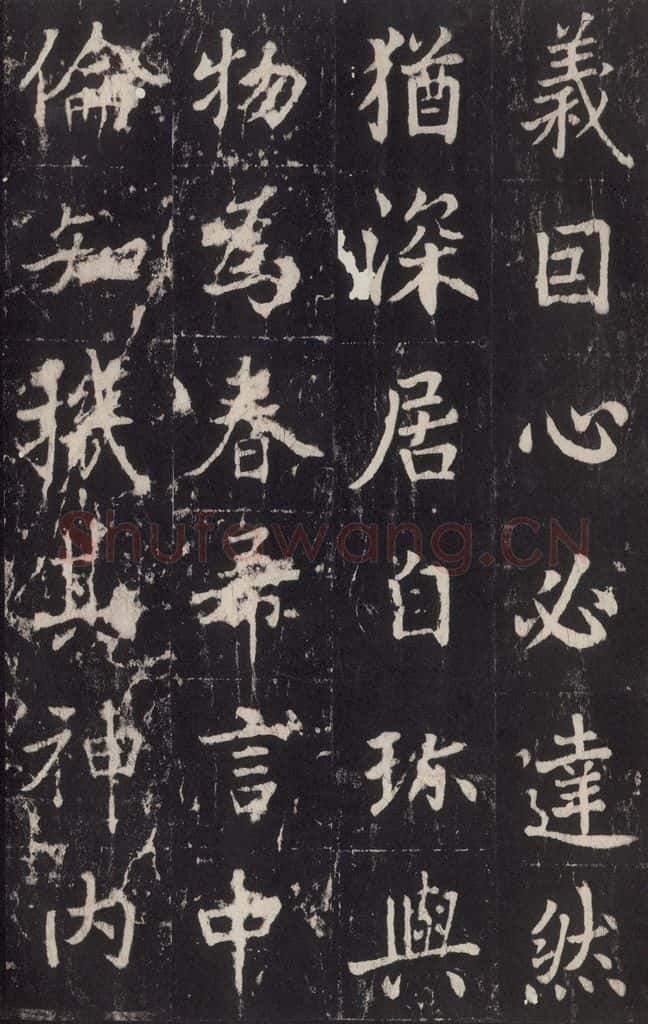 義回心必達然
猶深居自珎與
物為春希言中
倫知機其神内
Shufawang.CN